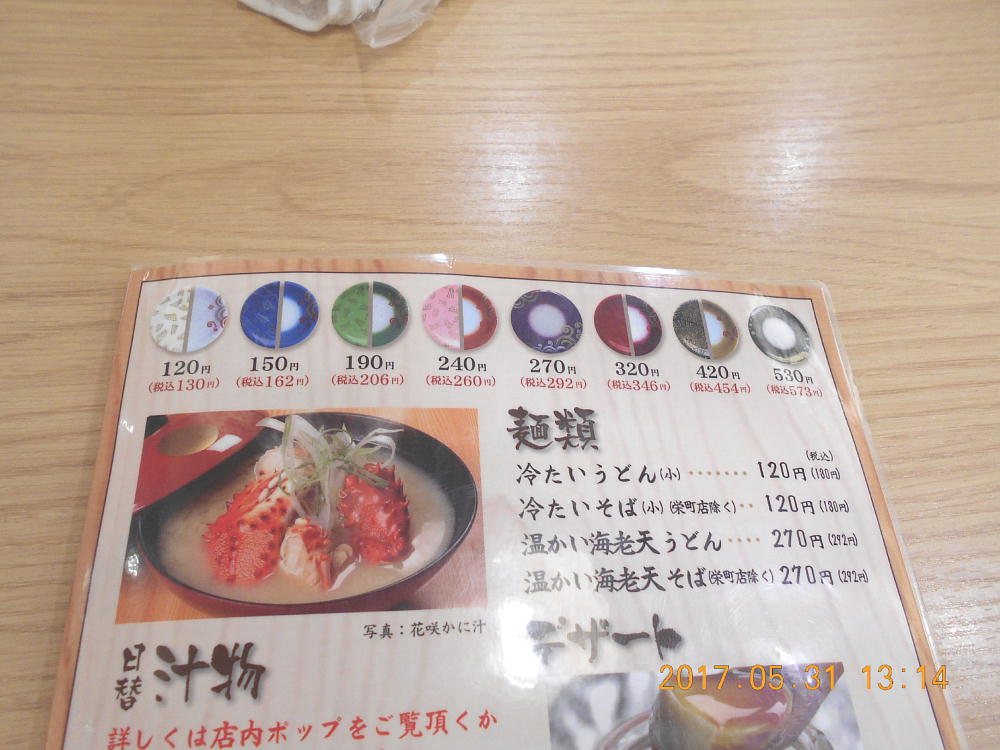 120円 150円 190円 240円 270円 320円 420円 530円
(税込130円) (税込162円) (税込206円) (税込260円) (税込292円) (税込346円) (税込454円) (税込573円)
麺類
(税込)
冷たいうどん(小)・・・・・・・120円(130円)
冷たいそば(小)(栄町店除く)・・120円(130円)
温かい海老天うどん・・・・270円(292円)
温かい海老天そば(栄町店除く)270円(292円)
写真：花咲かに汁
日替汁物
詳しくは店内ポップをご覧頂くか
デザート
2017.05.31 13:14